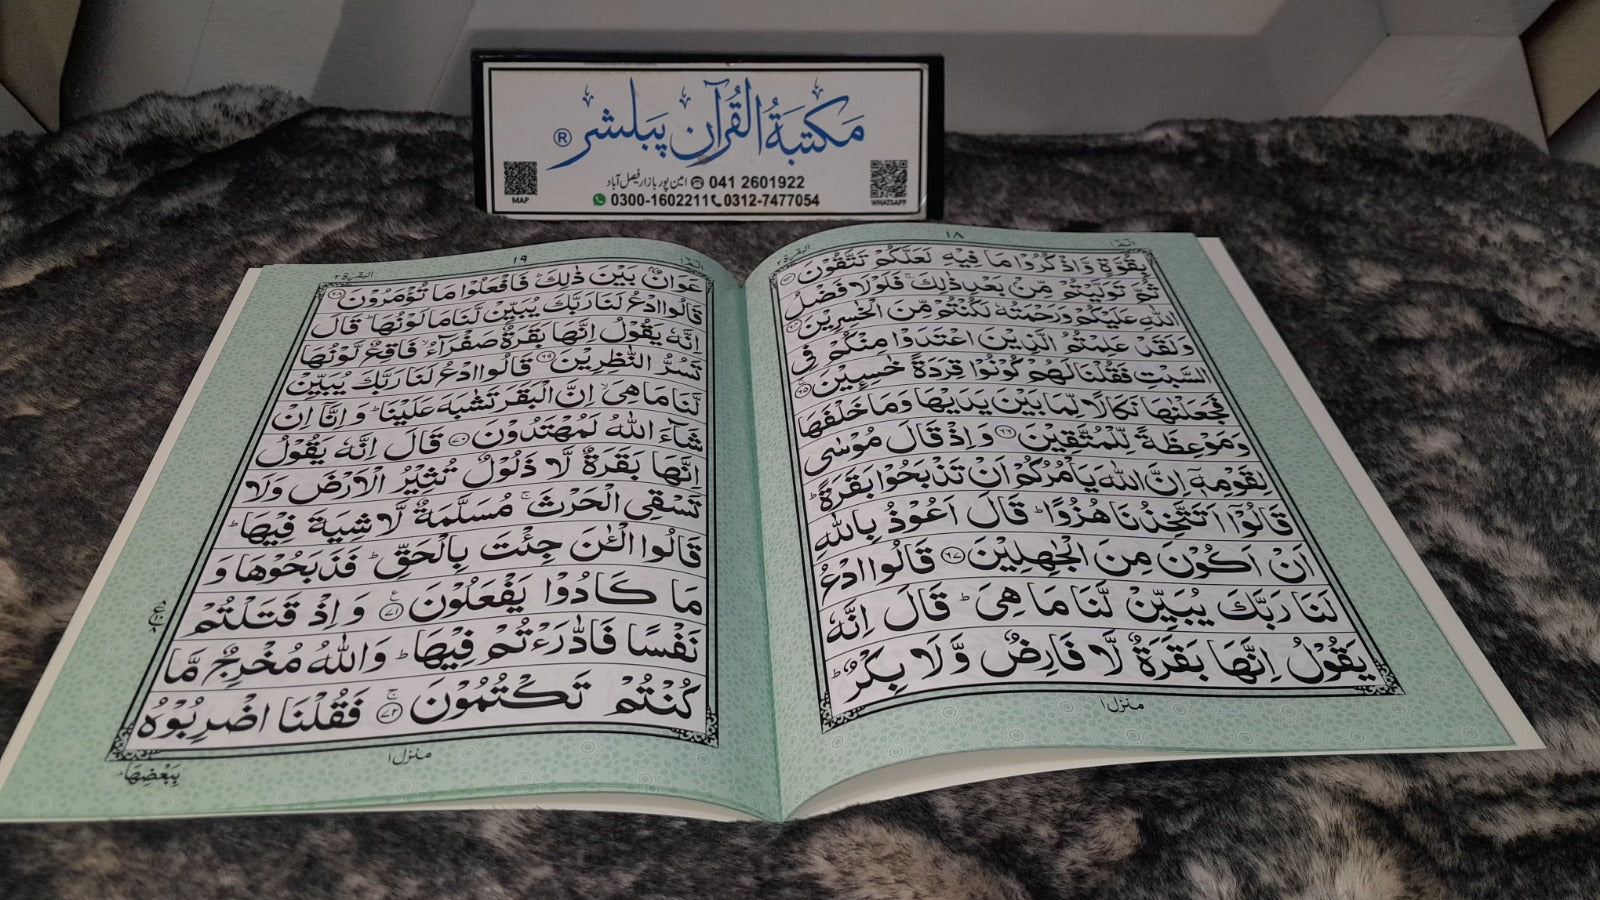 مَكتبَةُ القُرآن پَبلشر ®
امین پور بازار فیصل آباد ☎ 041 2601922
0300-1602211 0312-7477054
MAP
WHATSAPP
الٓمّٓ ١
١٨
البقرة ٢
بِقُوَّةٍ وَّاذْكُرُوْا مَا فِيْهِ لَعَلَّكُمْ تَتَّقُوْنَ ۝٦٣
ثُمَّ تَوَلَّيْتُمْ مِّنْۢ بَعْدِ ذٰلِكَ ۚ فَلَوْلَا فَضْلُ
اللّٰهِ عَلَيْكُمْ وَرَحْمَتُهٗ لَكُنْتُمْ مِّنَ الْخٰسِرِيْنَ ۝٦٤
وَلَقَدْ عَلِمْتُمُ الَّذِيْنَ اعْتَدَوْا مِنْكُمْ فِى
السَّبْتِ فَقُلْنَا لَهُمْ كُوْنُوْا قِرَدَةً خٰسِـِٕيْنَ ۝٦٥
فَجَعَلْنٰهَا نَكَالًا لِّمَا بَيْنَ يَدَيْهَا وَمَا خَلْفَهَا
وَمَوْعِظَةً لِّلْمُتَّقِيْنَ ۝٦٦ وَاِذْ قَالَ مُوْسٰى
لِقَوْمِهٖۤ اِنَّ اللّٰهَ يَاْمُرُكُمْ اَنْ تَذْبَحُوْا بَقَرَةً ؕ
قَالُوْۤا اَتَتَّخِذُنَا هُزُوًا ؕ قَالَ اَعُوْذُ بِاللّٰهِ
اَنْ اَكُوْنَ مِنَ الْجٰهِلِيْنَ ۝٦٧ قَالُوا ادْعُ
لَنَا رَبَّكَ يُبَيِّنْ لَّنَا مَا هِىَ ؕ قَالَ اِنَّهٗ
يَقُوْلُ اِنَّهَا بَقَرَةٌ لَّا فَارِضٌ وَّلَا بِكْرٌ ؕ
منزل ١
الٓمّٓ ١
١٩
البقرة ٢
عَوَانٌۢ بَيْنَ ذٰلِكَ ؕ فَافْعَلُوْا مَا تُؤْمَرُوْنَ ۝٦٨
قَالُوا ادْعُ لَنَا رَبَّكَ يُبَيِّنْ لَّنَا مَا لَوْنُهَا ؕ قَالَ
اِنَّهٗ يَقُوْلُ اِنَّهَا بَقَرَةٌ صَفْرَآءُ ۙ فَاقِعٌ لَّوْنُهَا
تَسُرُّ النّٰظِرِيْنَ ۝٦٩ قَالُوا ادْعُ لَنَا رَبَّكَ يُبَيِّنْ
لَّنَا مَا هِىَ ۙ اِنَّ الْبَقَرَ تَشٰبَهَ عَلَيْنَا ؕ وَاِنَّاۤ اِنْ
شَآءَ اللّٰهُ لَمُهْتَدُوْنَ ۝٧٠ قَالَ اِنَّهٗ يَقُوْلُ
اِنَّهَا بَقَرَةٌ لَّا ذَلُوْلٌ تُثِيْرُ الْاَرْضَ وَلَا
تَسْقِى الْحَرْثَ ۚ مُسَلَّمَةٌ لَّا شِيَةَ فِيْهَا ؕ
قَالُوا الْـٰٔنَ جِئْتَ بِالْحَقِّ ؕ فَذَبَحُوْهَا وَ
مَا كَادُوْا يَفْعَلُوْنَ ۝٧١ ع وَاِذْ قَتَلْتُمْ
نَفْسًا فَادّٰرَءْتُمْ فِيْهَا ؕ وَاللّٰهُ مُخْرِجٌ مَّا
كُنْتُمْ تَكْتُمُوْنَ ۝٧٢ ۚ فَقُلْنَا اضْرِبُوْهُ
منزل ١
بِبَعْضِهَا ؕ